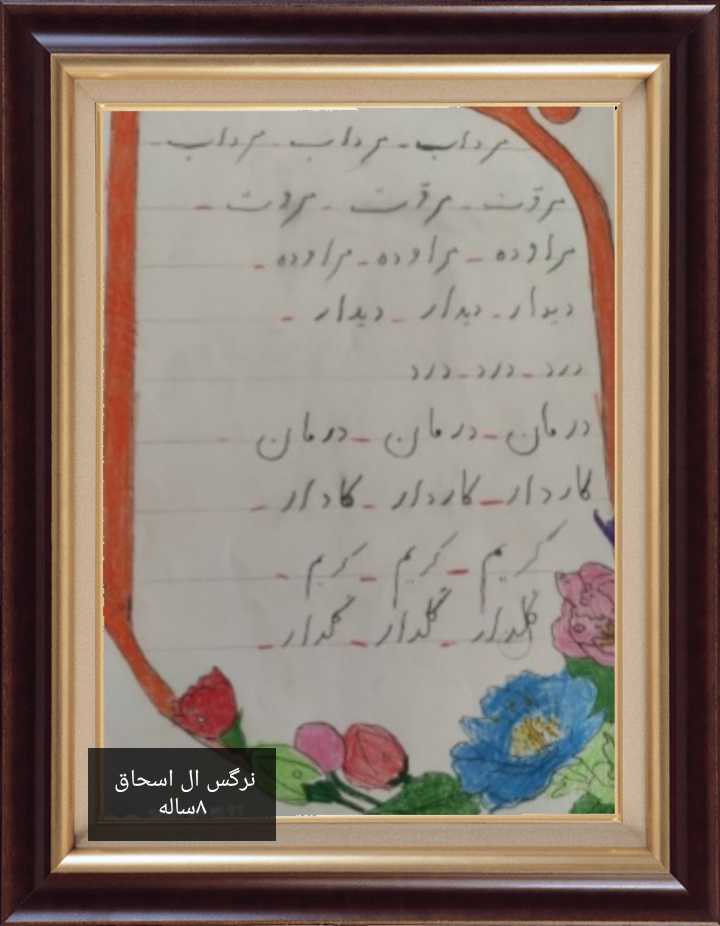 مرداب - مرداب - مرداب -
مروّت - مروّت - مروت -
مراوده - مراوده - مراوده -
دیدار - دیدار - دیدار -
درد - درد - درد
درمان - درمان - درمان -
کاردار - کاردار - کادار -
کریم - کریم - کریم -
گلدار - گلدار - گلدار -
نرگس ال اسحاق
۸ساله